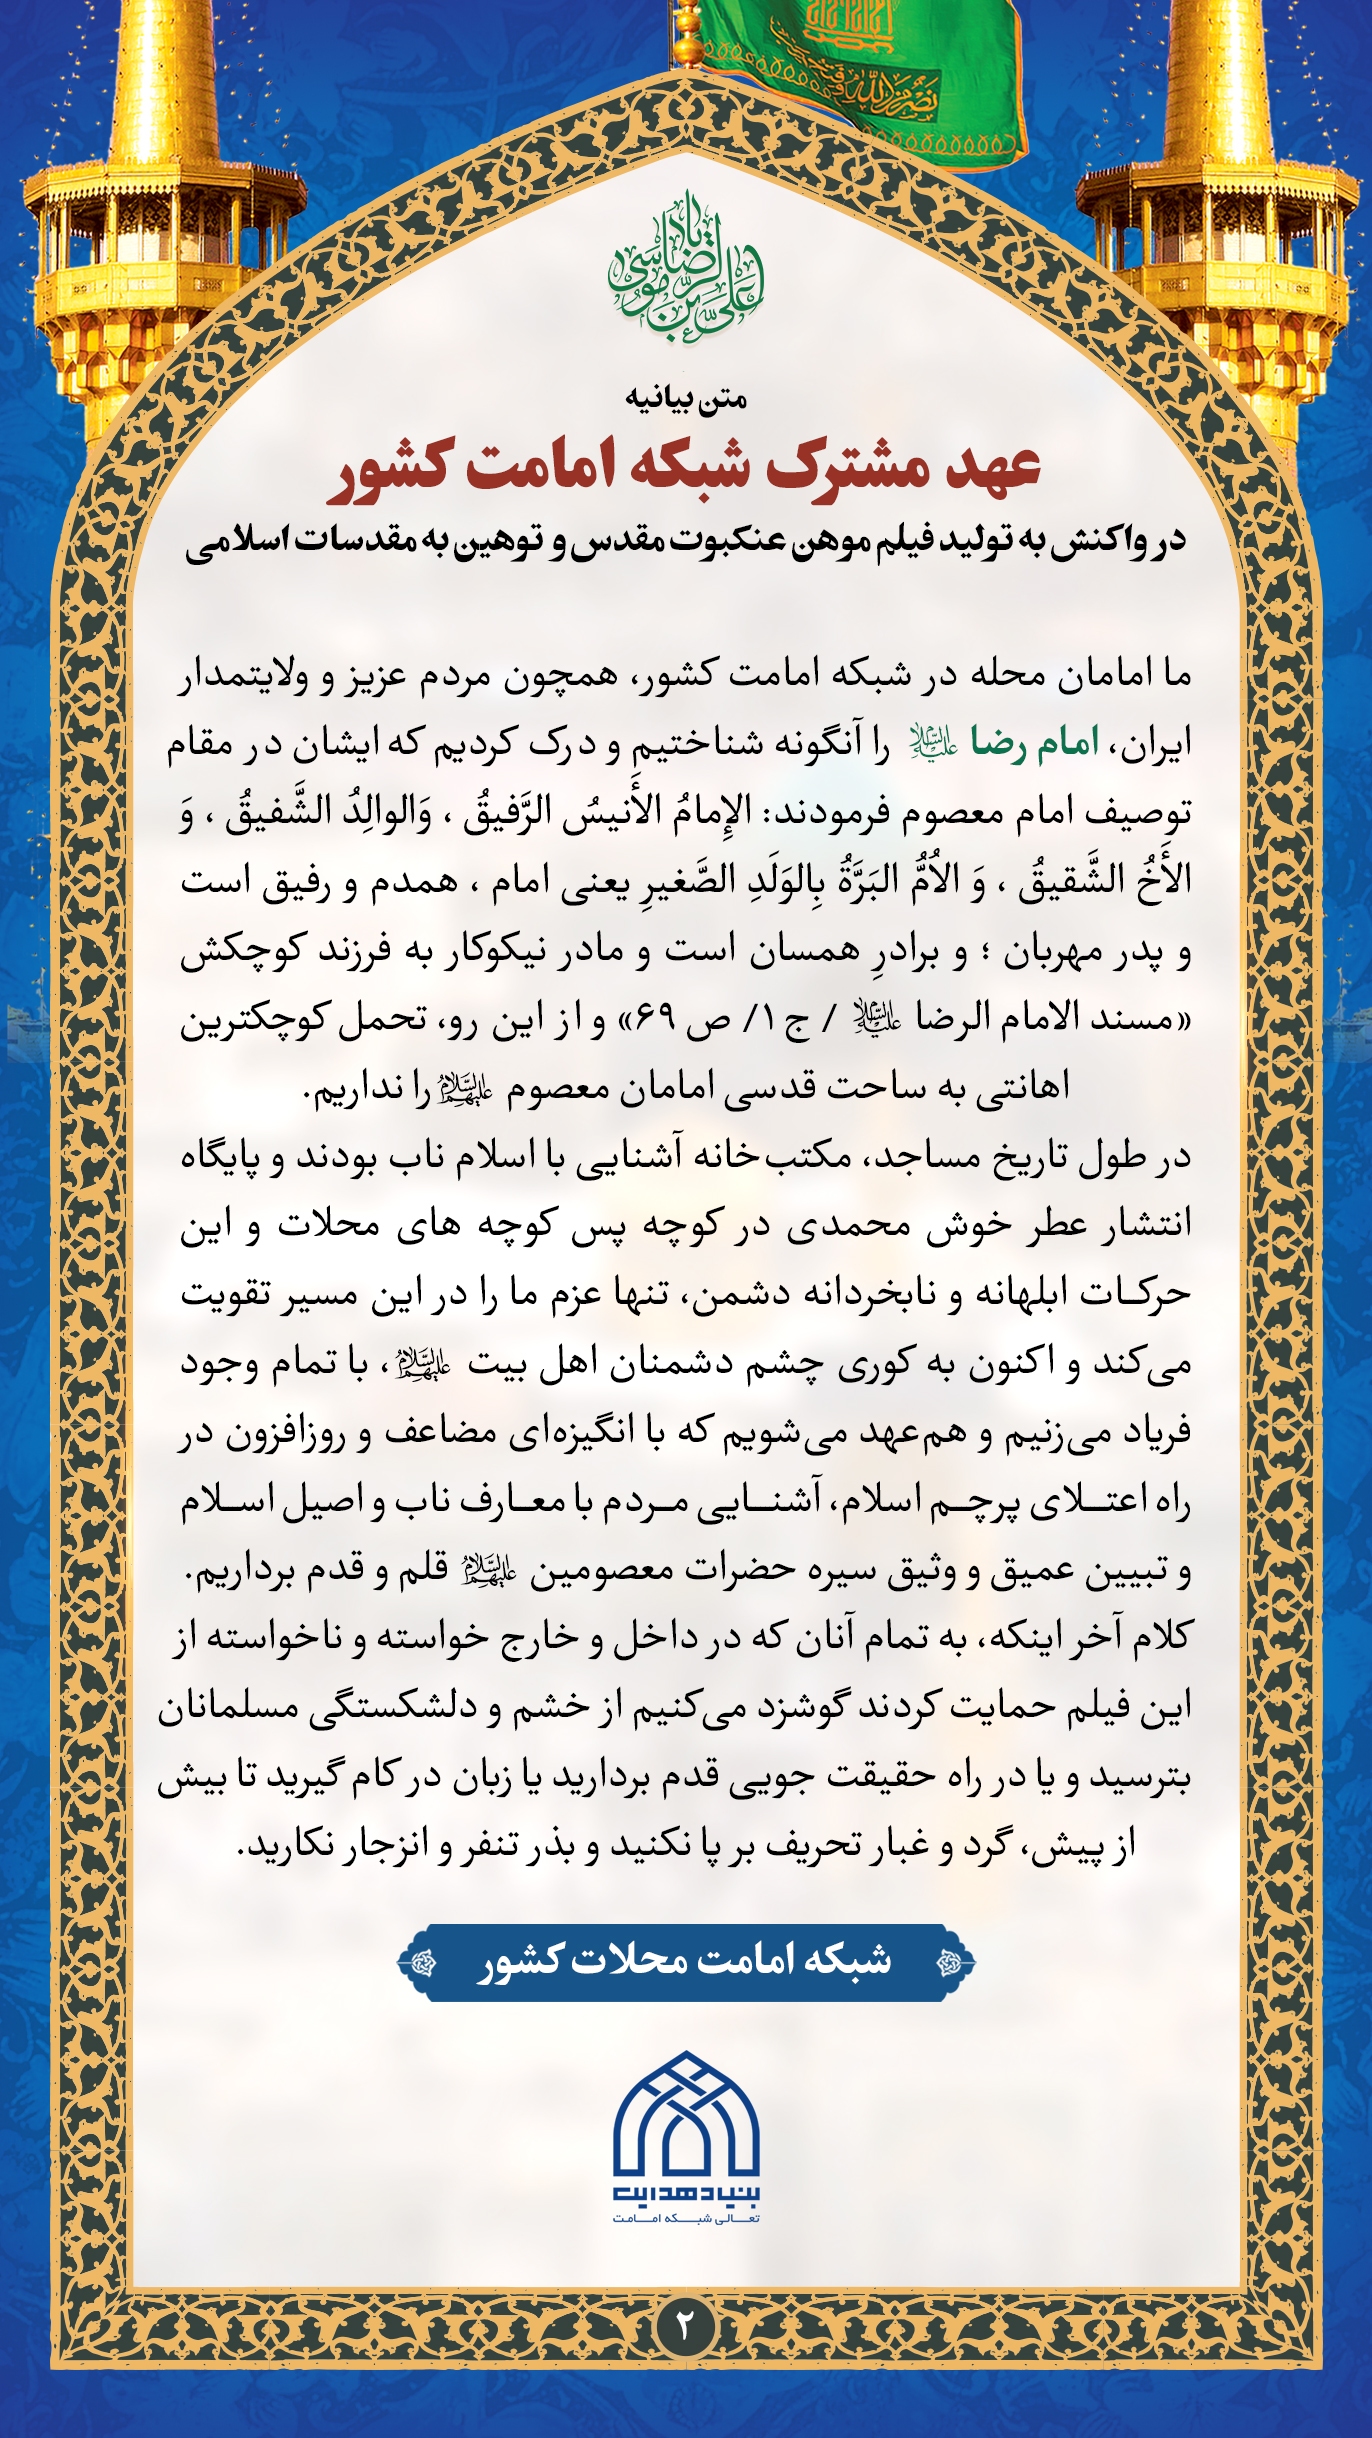 نصر من الله و فتح قریب
یا علی بن موسی الرضا
متن بیانیه
عهد مشترک شبکه امامت کشور
در واکنش به تولید فیلم موهن عنکبوت مقدس و توهین به مقدسات اسلامی
ما امامان محله در شبکه امامت کشور، همچون مردم عزیز و ولایتمدار
ایران، امام رضا علیه‌السلام را آنگونه شناختیم و درک کردیم که ایشان در مقام
توصیف امام معصوم فرمودند: الإِمامُ الأَنیسُ الرَّفیقُ ، وَالوالِدُ الشَّفیقُ ، وَ
الأَخُ الشَّقیقُ ، وَ الاُمُّ البَرَّةُ بِالوَلَدِ الصَّغیرِ یعنی امام ، همدم و رفیق است
و پدر مهربان ؛ و برادرِ همسان است و مادر نیکوکار به فرزند کوچکش
«مسند الامام الرضا علیه‌السلام / ج ۱/ ص ۶۹» و از این رو، تحمل کوچکترین
اهانتی به ساحت قدسی امامان معصوم علیهم‌السلام را نداریم.
در طول تاریخ مساجد، مکتب‌خانه آشنایی با اسلام ناب بودند و پایگاه
انتشار عطر خوش محمدی در کوچه پس کوچه های محلات و این
حرکـات ابلهانه و نابخردانه دشمن، تنها عزم ما را در این مسیر تقویت
می‌کند و اکنون به کوری چشم دشمنان اهل بیت علیهم‌السلام، با تمام وجود
فریاد می‌زنیم و هم‌عهد می‌شویم که با انگیزه‌ای مضاعف و روزافزون در
راه اعتـلای پرچـم اسلام، آشنـایی مـردم با معـارف ناب و اصیل اسـلام
و تبیین عمیق و وثیق سیره حضرات معصومین علیهم‌السلام قلم و قدم برداریم.
کلام آخر اینکه، به تمام آنان که در داخل و خارج خواسته و ناخواسته از
این فیلم حمایت کردند گوشزد می‌کنیم از خشم و دلشکستگی مسلمانان
بترسید و یا در راه حقیقت جویی قدم بردارید یا زبان در کام گیرید تا بیش
از پیش، گرد و غبار تحریف بر پا نکنید و بذر تنفر و انزجار نکارید.
شبکه امامت محلات کشور
بنیاد هدایت
تعـالی شبـکه امـامت
۲